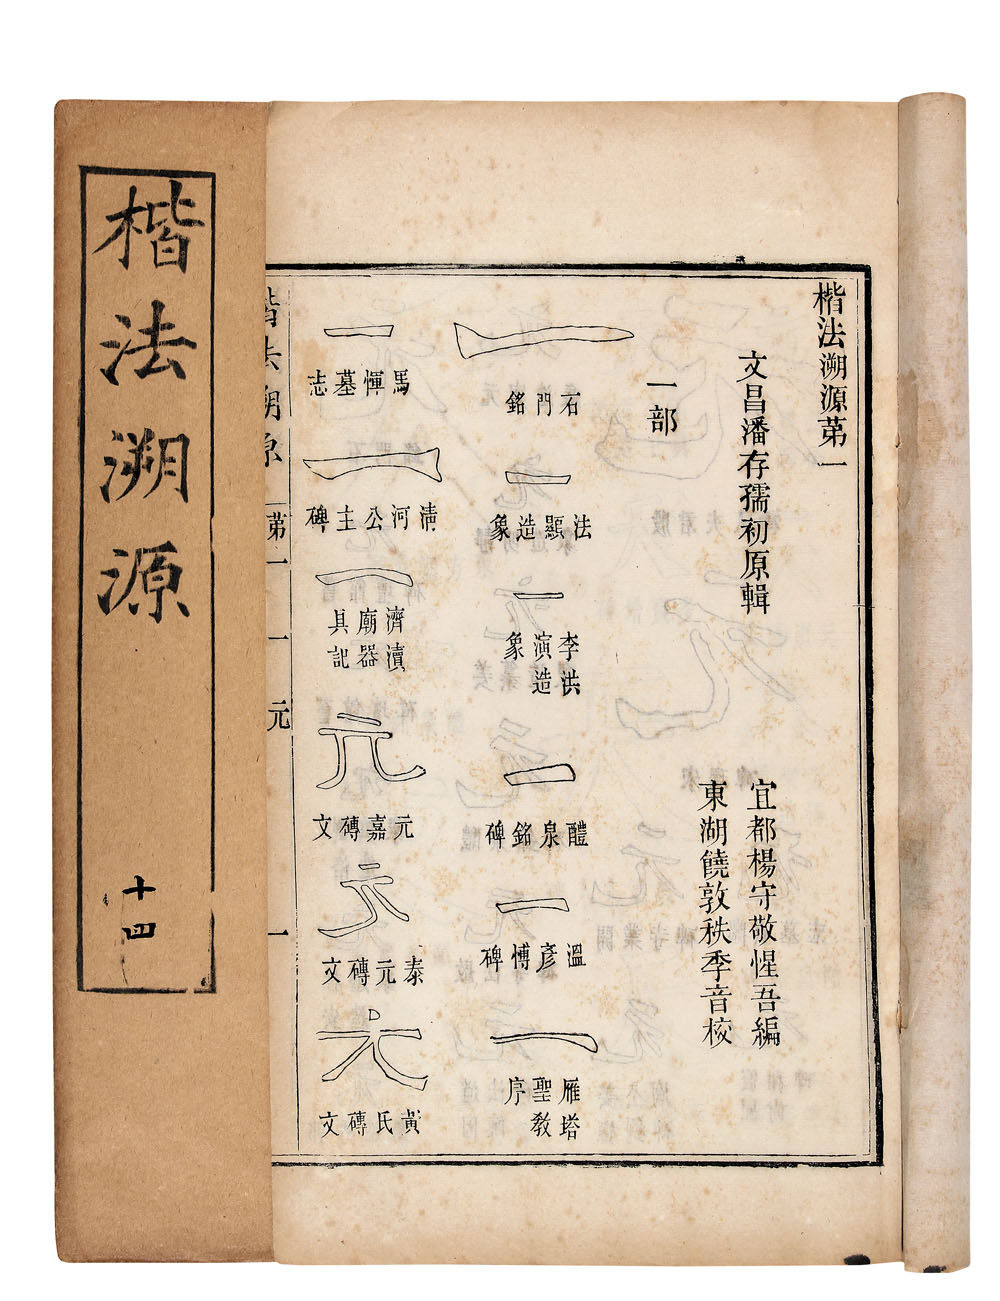 楷法溯源
十四
楷法溯源苐一
文昌潘存孺初原輯
宜都楊守敬惺吾編
東湖饒敦秩季音校
一部
一
石門銘
一
法顯造象
一
李洪演造象
一
醴泉銘碑
一
溫彥愽碑
一
雁塔聖教序
一
馬惲墓志
一
清河公主碑
一
濟瀆廟器具記
元
元嘉磚文
元
泰元磚文
元
黃氏磚文
楷法溯源 苐一 一 元 一